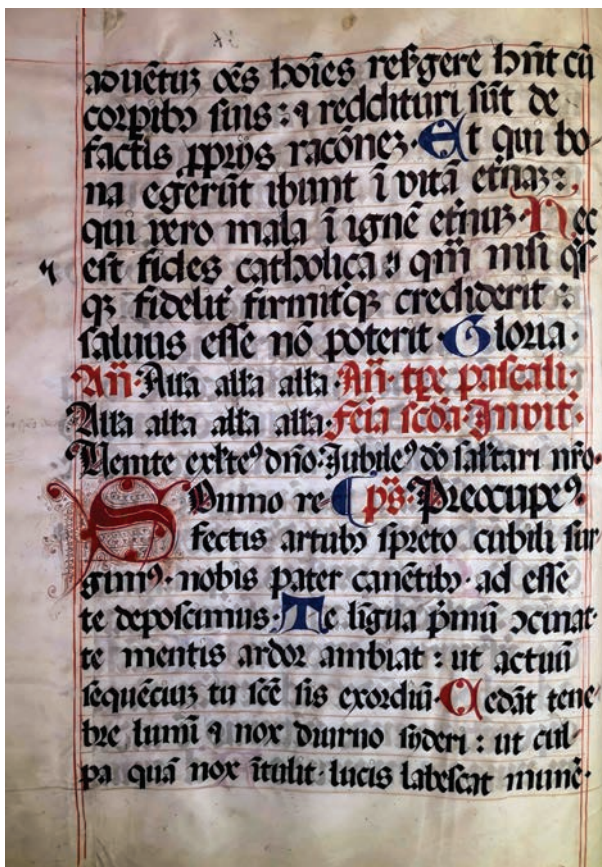 aduētuȝ oēs hoīes resꝰgere hn̄t cū
corpibꝰ suis : ⁊ reddituri sūt de
factis ꝓprijs racōneȝ · Et qui bo
na egerūt ibunt ī vitā et̄naȝ :
qui vero mala ī ignē et̄nuȝ · Hec
est fides catholica : quā nisi qͥs
qȝ fidelit̄ firmitˀqȝ crediderit :
saluus esse nō poterit · Gloria ·
An̄ · Alla alla alla · An̄ · tꝑe pascali ·
Alla alla alla alla · Feīa scd̄a · Inuit̄ ·
Uenite exl̄teꝰ dn̄o · Jubileꝰ dō sal̄tari nr̄o ·
Somno re pš · Preocupeꝰ ·
fectis artubꝰ spreto cubili sur
gimꝰ · nobis pater canētibꝰ · ad esse
te deposcimus · Te līgua pͥmū ꝯcinat ·
te mentis ardor ambiat : ut actuū
sequēciuȝ tu scē sis exordiū · Cedāt tene
bre lumī ⁊ nox diurno syderi : ut cul
pa quā nox ītulit · lucis labescat munē ·